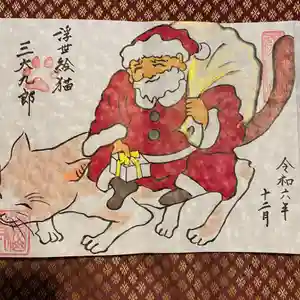 浮世絵猫
三太九郎
令和六年
十二月